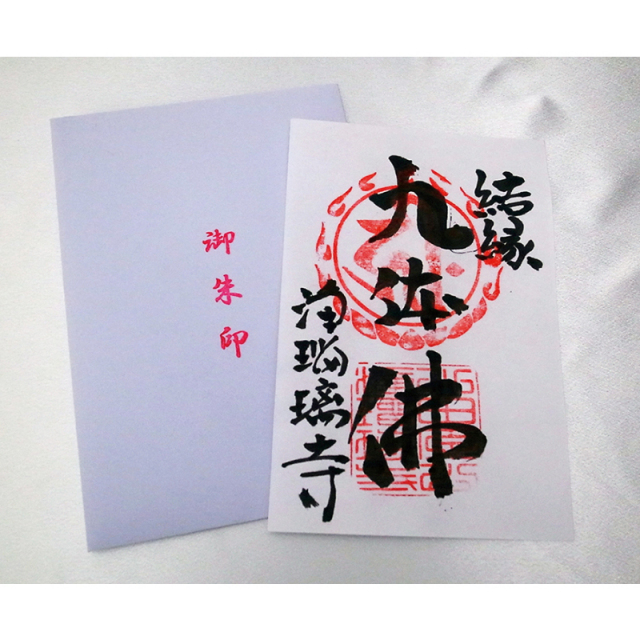 御朱印
結縁
九体佛
浄瑠璃寺